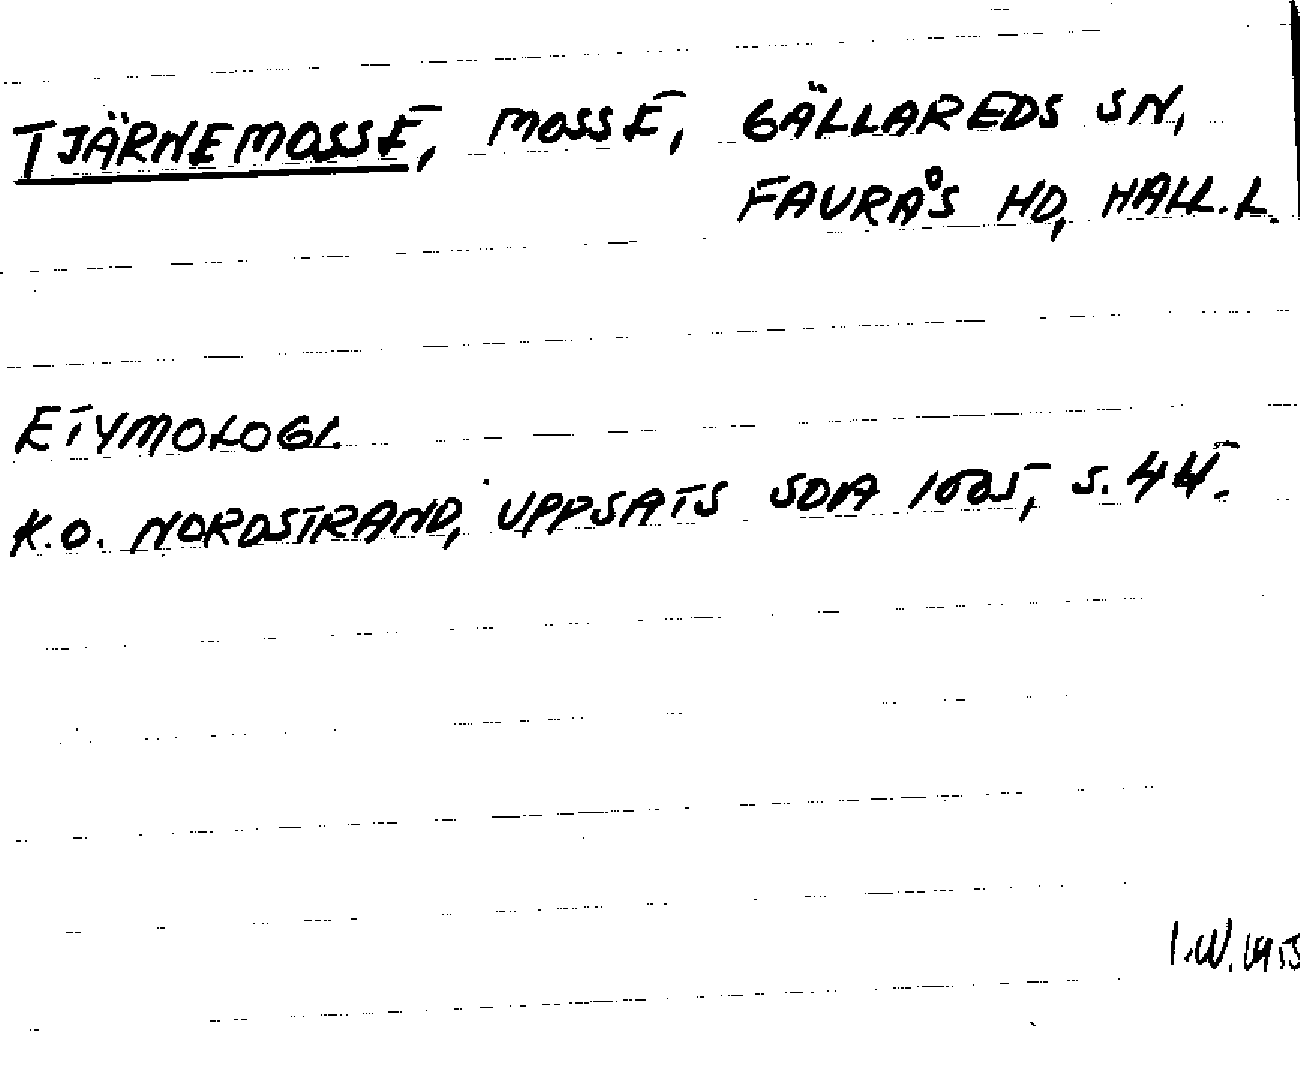 TJÄRNEMOSSE, MOSSE, GÄLLAREDS SN,
FAURÅS HD, HALL.L.
ETYMOLOGI.
K.O. NORDSTRAND, UPPSATS SOIA 1005, S. 44.
I.W. 1955